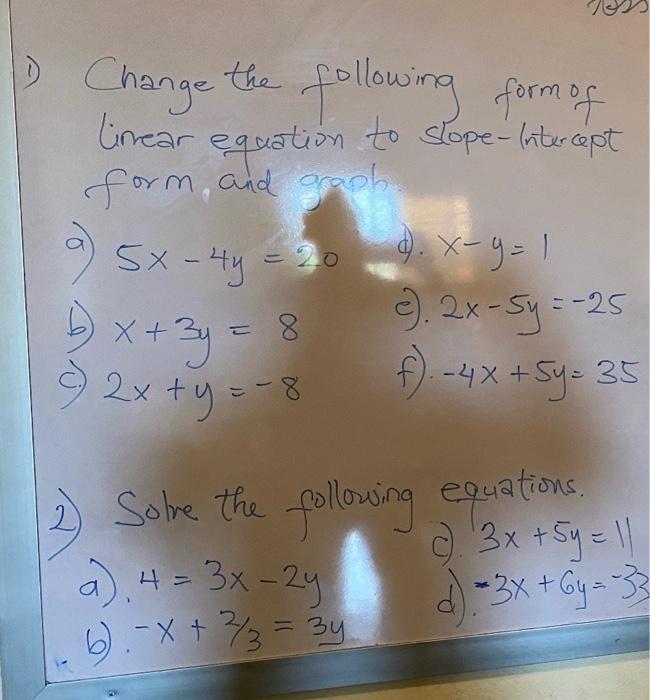 1) Change the following form of
linear equation to slope-Intercept
form, and graph.
a) 5x - 4y = 20
b) x + 3y = 8
c) 2x + y = -8
d). x - y = 1
e). 2x - 5y = -25
f). -4x + 5y = 35
2) Solve the following equations.
a). 4 = 3x - 2y
b). -x + 2/3 = 3y
c). 3x + 5y = 11
d). -3x + 6y = -33